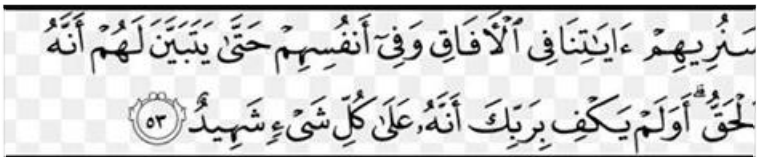 سَنُرِيهِمْ ءَايَٰتِنَا فِى ٱلْءَافَاقِ وَفِىٓ أَنفُسِهِمْ حَتَّىٰ يَتَبَيَّنَ لَهُمْ أَنَّهُ
ٱلْحَقُّ ۗ أَوَلَمْ يَكْفِ بِرَبِّكَ أَنَّهُۥ عَلَىٰ كُلِّ شَىْءٍ شَهِيدٌ ٥٣